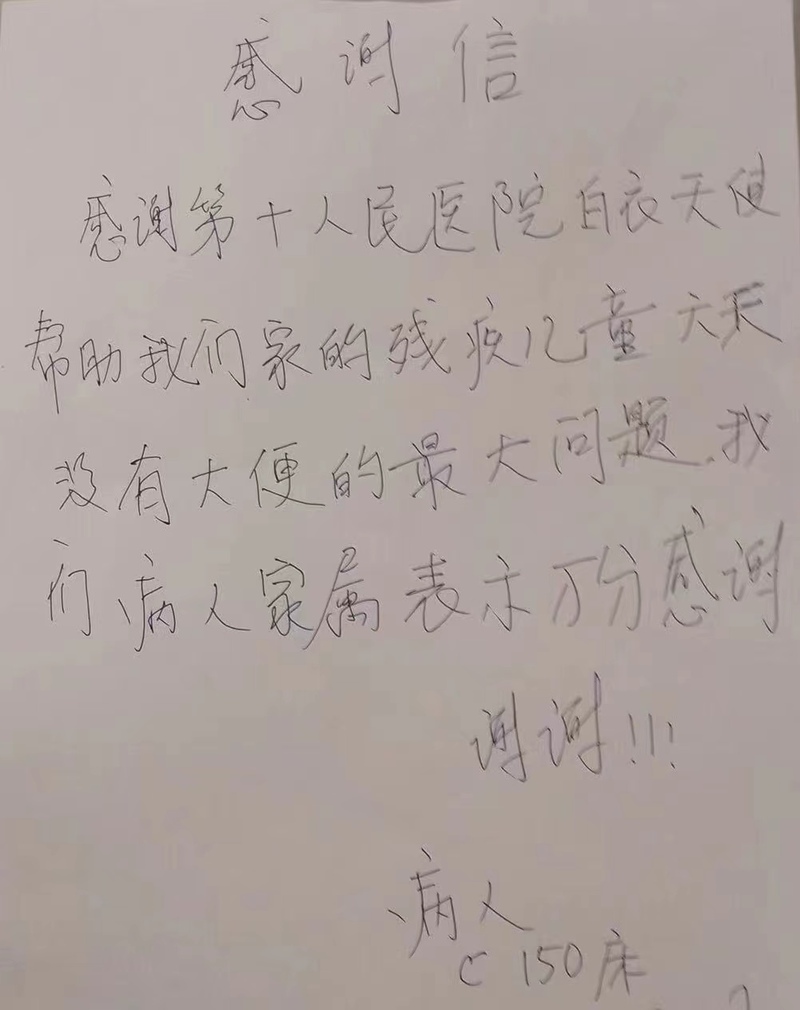 感谢信
感谢第十人民医院白衣天使
帮助我们家的残疾儿童六天
没有大便的最大问题.我
们病人家属表示万分感谢
谢谢!!!
病人
C 150床